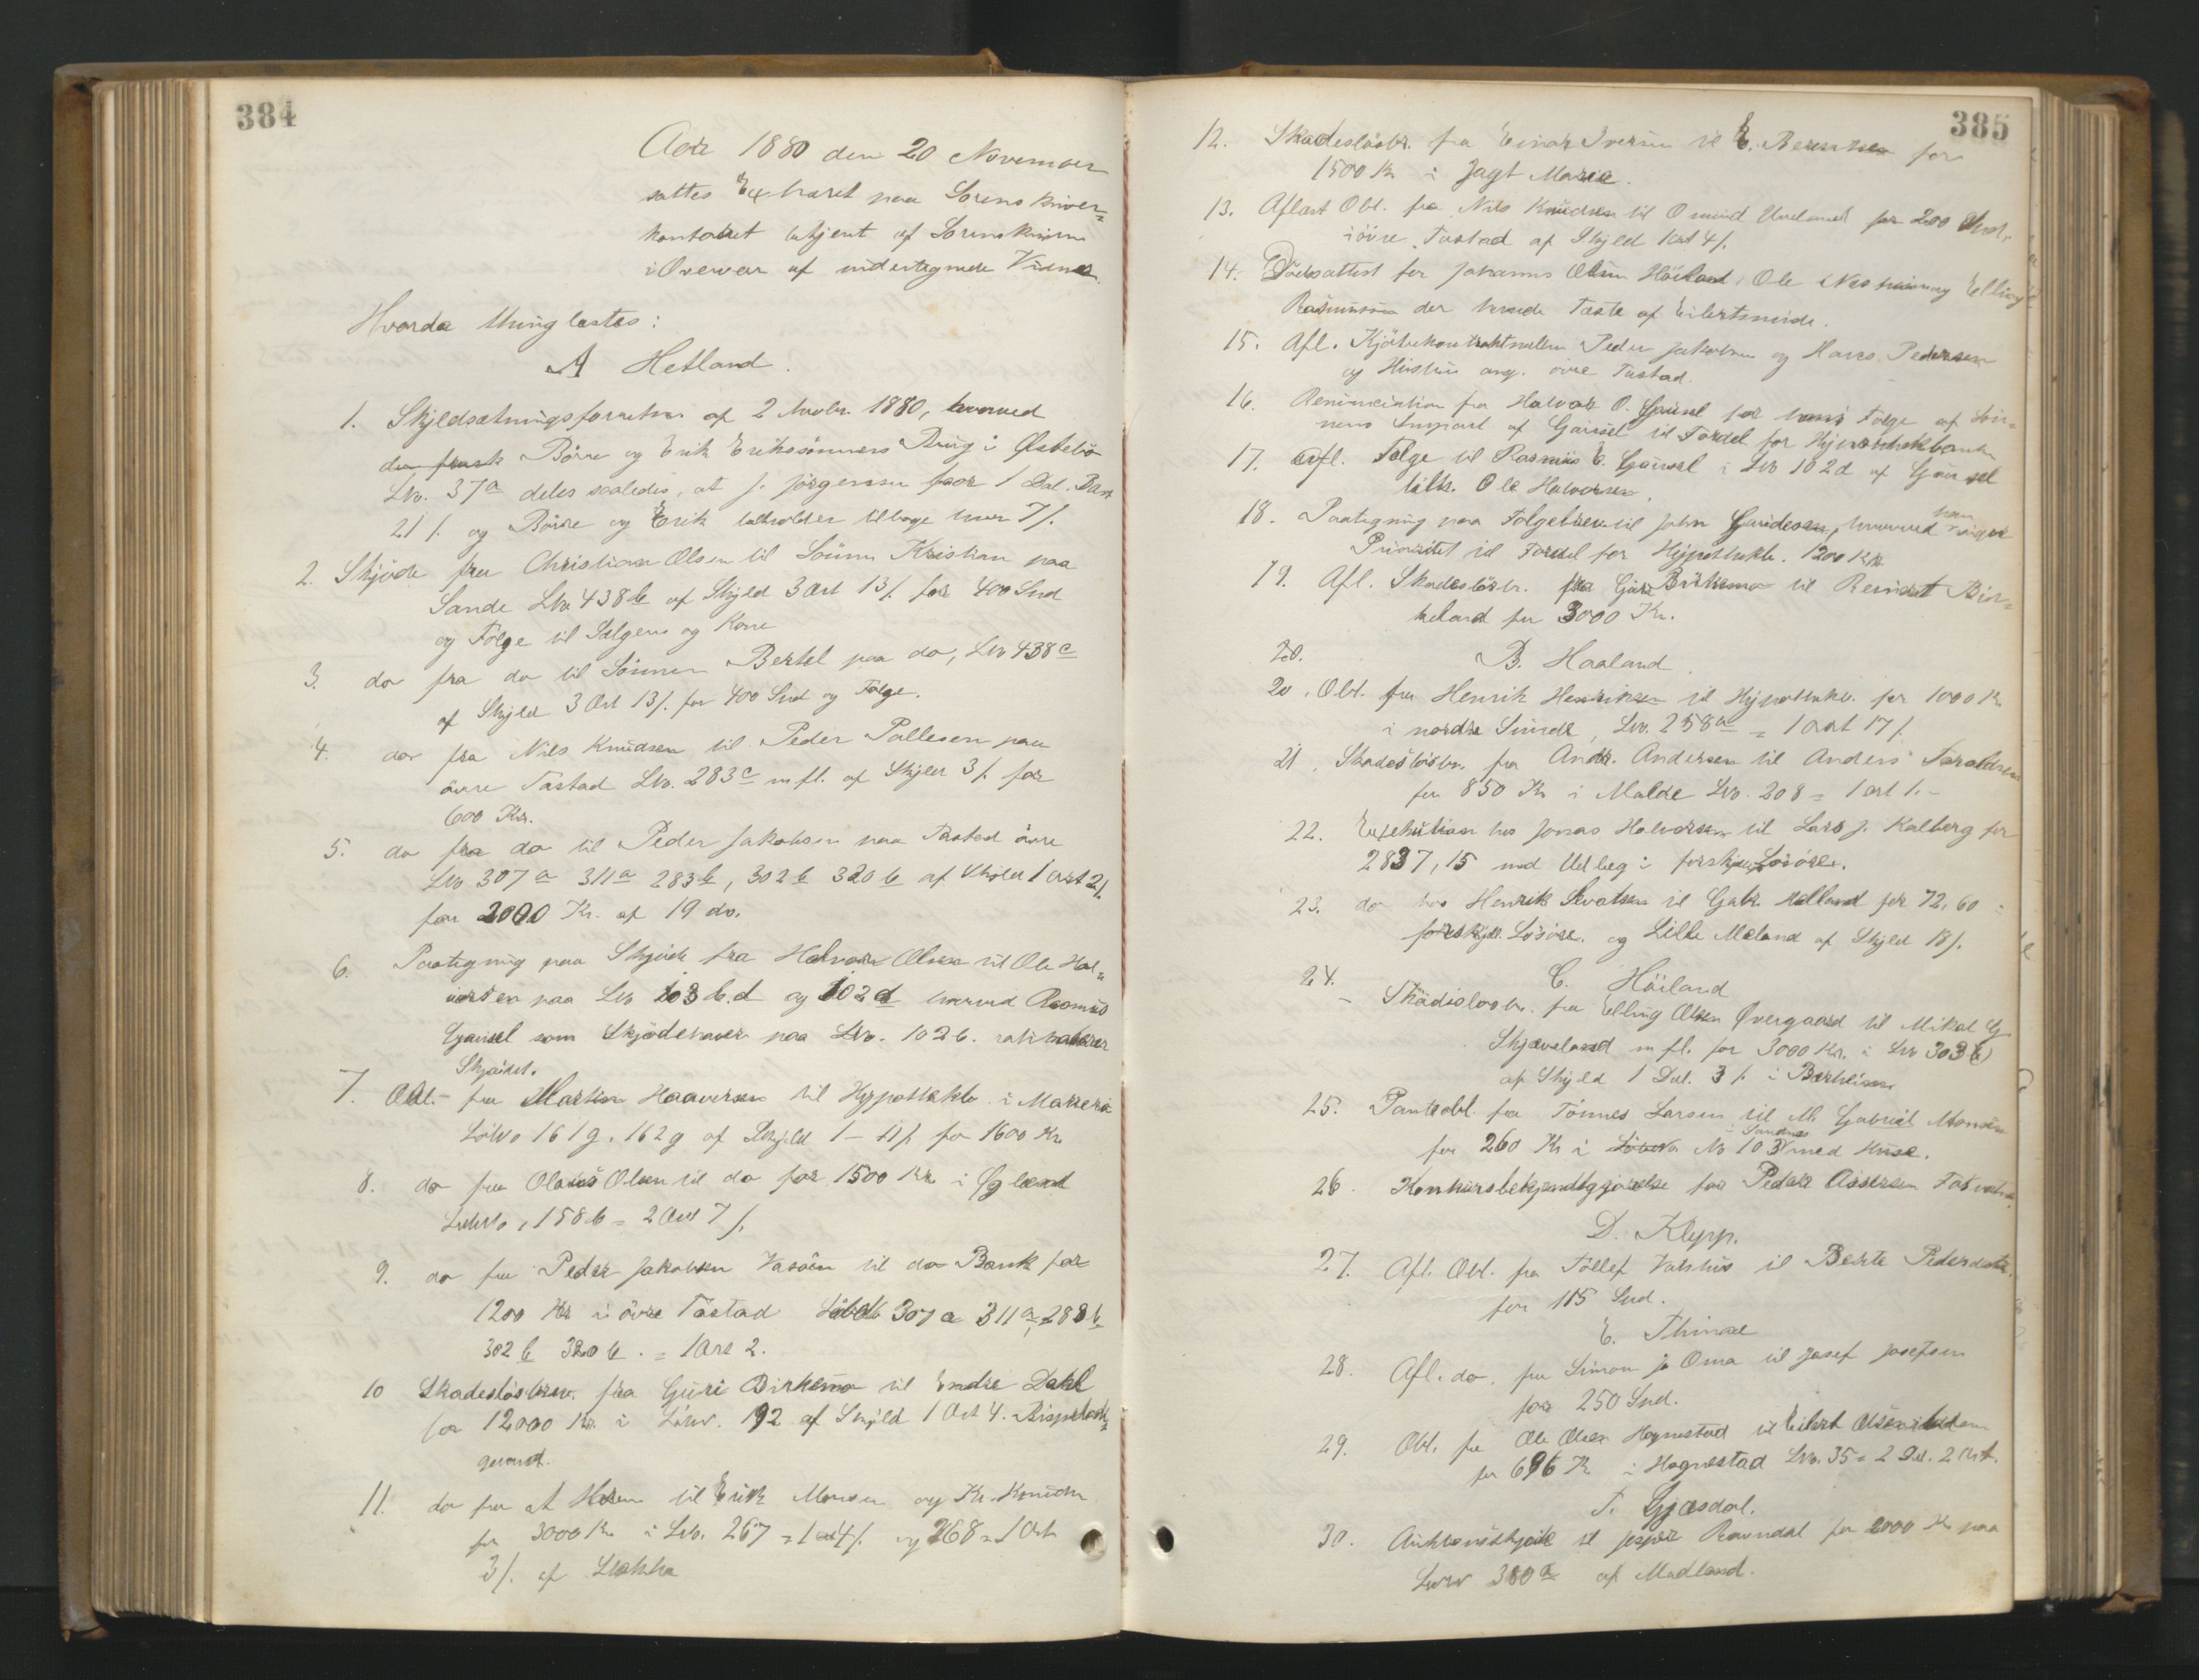 384
Aar 1880 den 20 November
sattes Ex. haret paa Sorenskriver=
kontoret betjent af Sorenskriveren
i Overvær af undertegnede Vidner.
Hvorda thinglæstes:
A Hetland.
1. Skjeldsætningsforretn. af 2 Novbr. 1880, hvorved
Börre og Erik Erikssönners Brug i
Lbr. 37a deles saaledes, at J. Jörgensen faar 1 Dal.
21 /. og Börre og Erik beholder tilbage hver 7/.
2. Skjöde fra Christian Olsen til Sönnen Kristian paa
Sande Lbr. 438b af Skyld 3 Ort 13 /. for 400 Spd
og Fölge til Sælgeren og Kone
3. do fra do til Sönnen Bertel paa do, Lbr 438c
af Skyld 3 Ort 13/. for 400 Spd og Fölge.
4. do fra Nils Knudsen til Peder Pallesen paa
övre Tastad Lbr. 283c m fl. af Skyld 3 /. for
600 Kr.
5. do fra do til Peder Jakobsen paa Tastad övre
Lbr 307a 311a 283b, 302b 320b af Skyld 1 Ort 2/.
for 2000 Kr. af 19 do.
6. Paategning paa Skjöde fra Halvor Olsen til Ole Hal=
vorsen paa Lbr 103 b.d og 102d hvorved Rasmus
Gausel som Skjödehaver paa Lbr. 102b. ratihaberer
Skjödet.
7. Obl. fra Martin Haaversen til Hypothekb. i Marrerö
LöbNo 161g. 162g af Skyld 1 - 11/. for 1600 Kr.
8. do fra Olaus Olsen til do for 1500 Kr. i Ogland
LöbNo. 158b = 2 Ort 7 /.
9. do fra Peder Jakobsen Vasöen til do Bank for
1200 Kr i övre Tastad LöbNo 307a 311a 283b
302b 320b. = 1 Ort 2.
10 Skadeslösbrev. fra Guri Birkemo til Endre Dahl
for 12000 Kr. i Löbnr. 192 af Skyld 1 Ort 4.
11. do fra A til Erik Monsen og Kr. Knudsen
for 3000 Kr i Lbr. 267 = 1 ort 4/. og 268 = 1 Ort
3/. af Stokka
385
12. Skadeslösbr. fra Einar Iversen til E. Berentsen for
1500 Kr i Jagt Marie.
13. Aflæst Obl. fra Nils Knudsen til Omund for 200 Spd.
i övre Tastad af Skyld 1 Ort 4/.
14. Dödsattest for Johannes Olsen Höiland, Ole og Elling
Rasmussen der havde Fæste af
15. Afl. Kjöbekontrakt mellem Peder Jakobsen og Hans Pedersen
og Hustru ang. övre Tastad.
16. Renunciation fra Halvor O. Gausel for hans Fölge af Sön=
nens Anpart af Gausel til Fordel for Hypothekbanken
17. Afl. Fölge til Rasmus E. Gausel i Lbr 102d af Gausel
tilh. Ole Halvorsen.
18. Paategning paa Fölgebrev til John Guudesen, hvorved han viger
Prioritet til Fordel for Hypothekb. 1200 Kr.
19. Afl. Skadeslösbr. fra Guri Birkemo til Berndt Bir=
keland for 3000 Kr.
20. B. Haaland
20. Obl. fra Henrik Henriksen til Hypothekb. for 1000 Kr.
i nordre Sunde, Lbr. 258a = 1 ort 17 /.
21. Skadeslösbr. fra Andr. Andersen til Anders Taraldsen
for 850 Kr i Malde Lbr. 208 = 1 ort 1.-
22. Exsekution hos Jonas Halvorsen til Lars J. Kalberg for
2837,15 med Udlæg i forskjell. Lösöre.
23. do hos Henrik til Gabr. Hetland for 72,60 i
forskjell. Lösöre. og Lille Meland af Skyld 18/.
24. C. Höiland
- Skadeslösbr. fra Elling Olsen Overgaard til Mikal G
Skjæveland m fl. for 3000 Kr. i Lbr 303b)
af Skyld 1 Dal. 3 /. i Bærheim
25. Panteobl. fra Tönnes Larsen til M. Gabriel Monsen
for 260 Kr i No 103 i Sandnes med Huse.
26. Konkursbekjendtgjörelse for Peder Assersen
D. Klepp.
27. Afl. Obl. fra Tollef til Berte Pedersdatter
for 115 Spd.
E. Thime
28. Afl. do. fra Simon J. Oma til Josef Josefsen
for 250 Spd.
29. Obl. fra Ole Olsen Hognestad til Eilert Olsen
for 696 Kr i Hognestad Lbr. 35 = 2 Dal. 2 Ort.
F. Gjesdal.
30. Auktionsskjöde til Jesper Ravndal for 2000 Kr paa
Lbnr 380a af Madland.